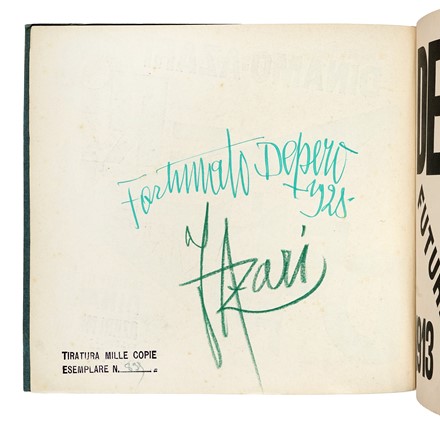 Fortunato Depero
+ 928-
F Azari
TIRATURA MILLE COPIE
ESEMPLARE N.
DE
FUTUR
913